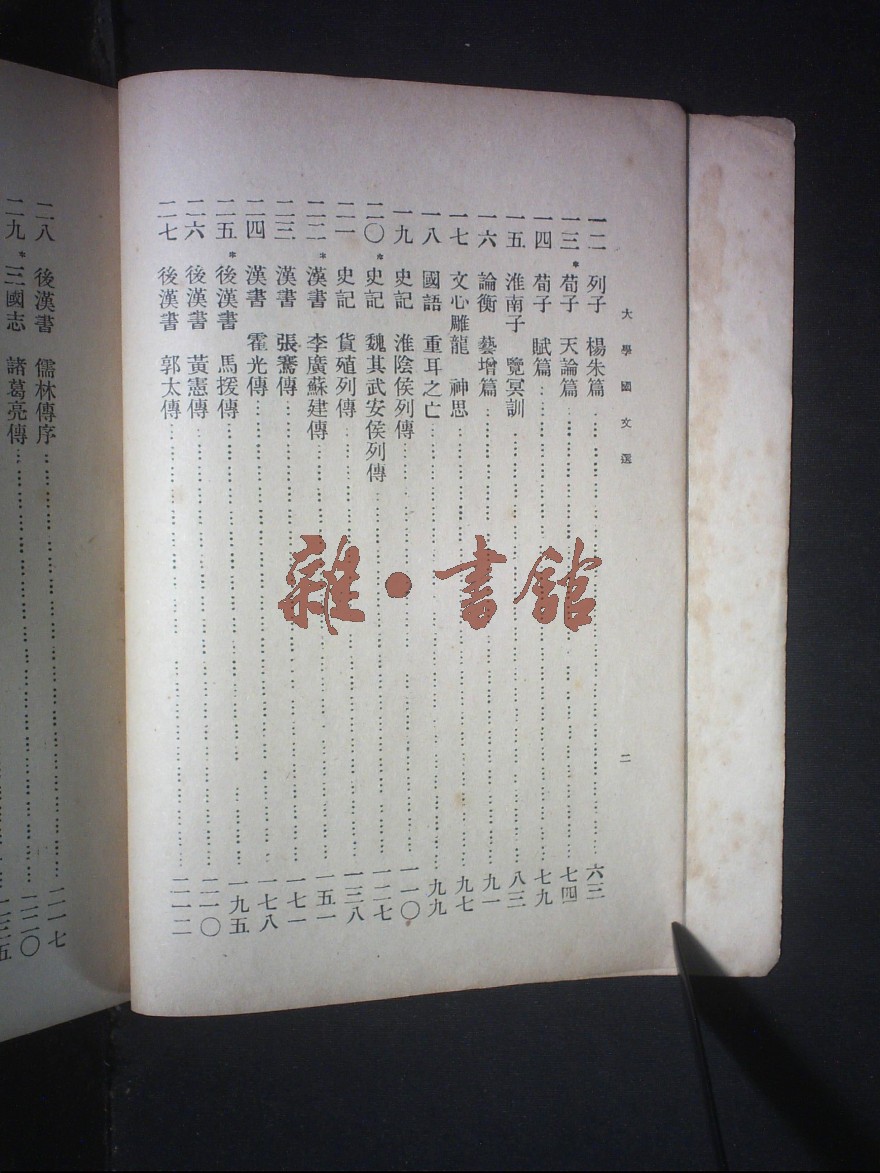 大學國文選 二
一二 列子 楊朱篇 …… 六三
一三 *荀子 天論篇 …… 七四
一四 荀子 賦篇 …… 七九
一五 淮南子 覽冥訓 …… 八三
一六 論衡 藝增篇 …… 九一
一七 文心雕龍 神思 …… 九七
一八 國語 重耳之亡 …… 九九
一九 史記 淮陰侯列傳 …… 一一〇
二〇 *史記 魏其武安侯列傳 …… 一二七
二一 史記 貨殖列傳 …… 一三八
二二 *漢書 李廣蘇建傳 …… 一五一
二三 漢書 張騫傳 …… 一七一
二四 漢書 霍光傳 …… 一七八
二五 *後漢書 馬援傳 …… 一九五
二六 後漢書 黃憲傳 …… 二一〇
二七 後漢書 郭太傳 …… 二一二
二八 後漢書 儒林傳序 …… 二一七
二九 *三國志 諸葛亮傳 …… 二二〇
雜·書館